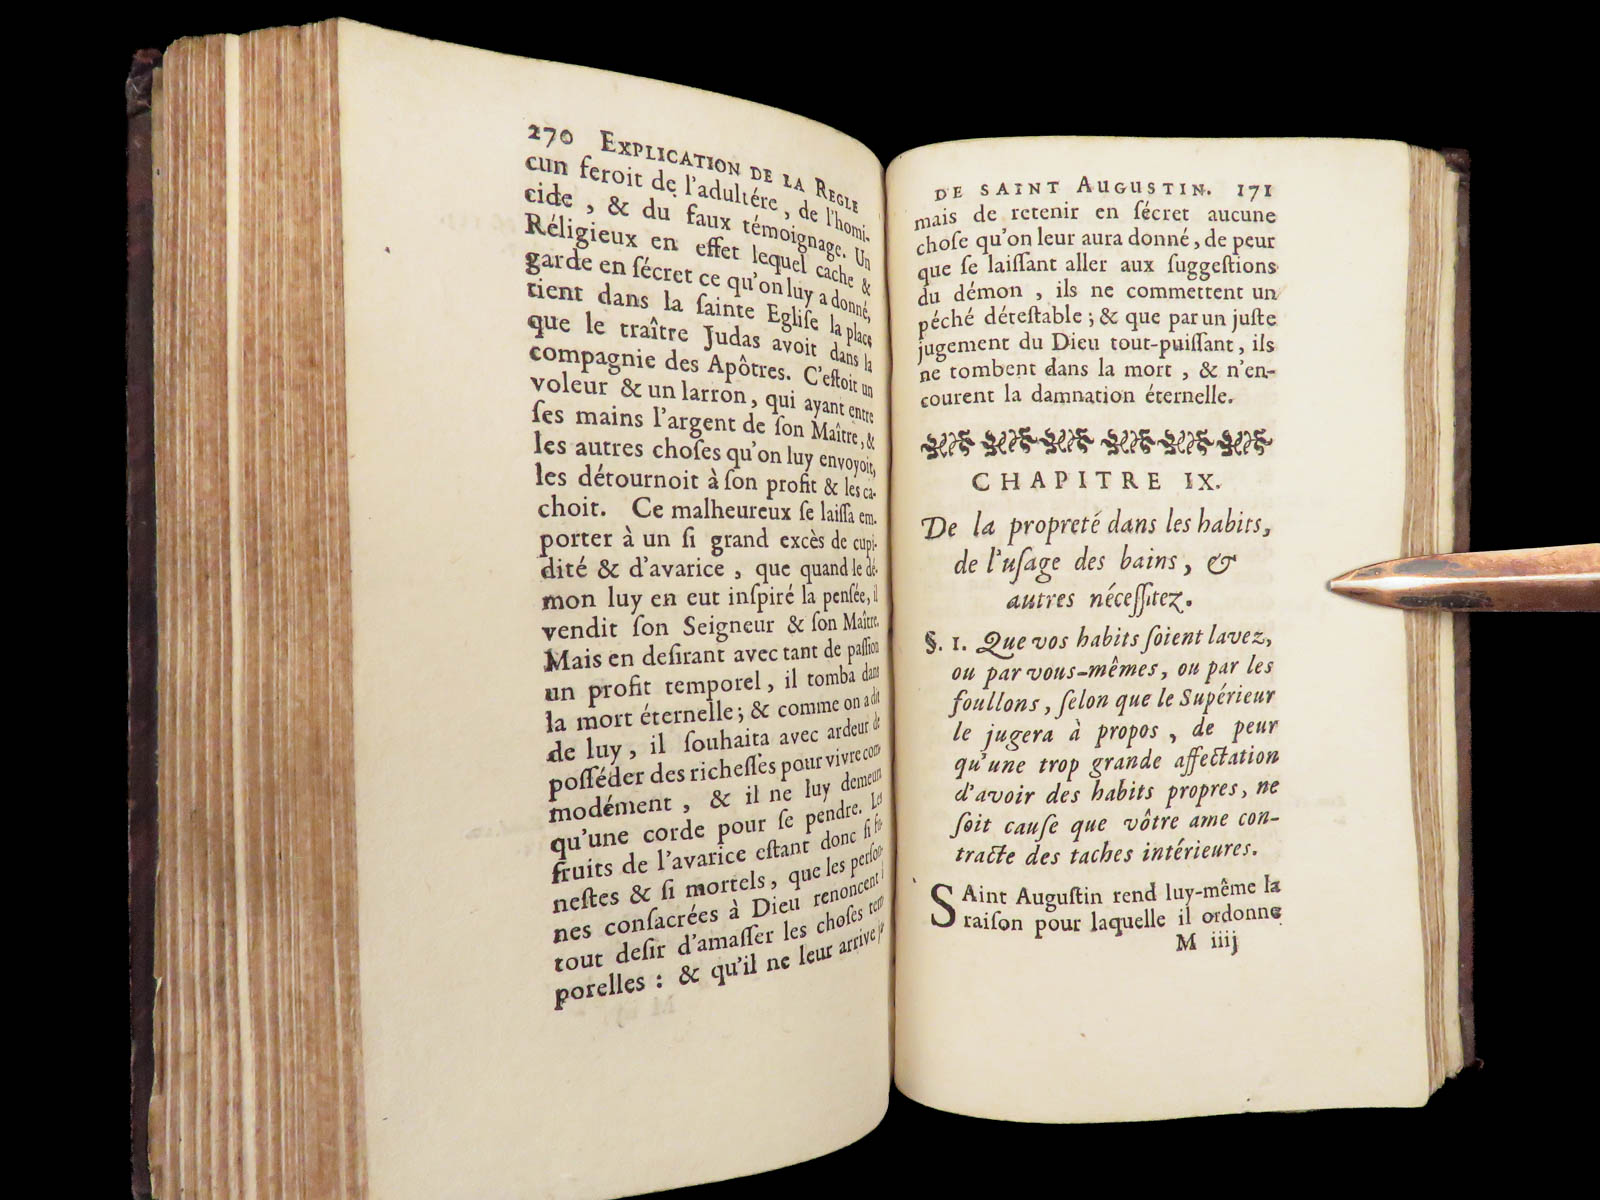 270 EXPLICATION DE LA REGLE
cun feroit de l'adultére, de l'homi-
cide, & du faux témoignage. Un
Réligieux en effet lequel cache &
garde en ſécret ce qu'on luy a donné,
tient dans la ſainte Egliſe la place
que le traître Judas avoit dans la
compagnie des Apôtres. C'eſtoit un
voleur & un larron, qui ayant entre
ſes mains l'argent de ſon Maître, &
les autres choſes qu'on luy envoyoit,
les détournoit à ſon profit & les ca-
choit. Ce malheureux ſe laiſſa em-
porter à un ſi grand excès de cupi-
dité & d'avarice, que quand le dé-
mon luy en eut inſpiré la penſée, il
vendit ſon Seigneur & ſon Maître.
Mais en deſirant avec tant de paſſion
un profit temporel, il tomba dans
la mort éternelle; & comme on a dit
de luy, il ſouhaita avec ardeur de
poſſéder des richeſſes pour vivre com-
modément, & il ne luy demeura
qu'une corde pour ſe pendre. Les
fruits de l'avarice eſtant donc ſi fu-
neſtes & ſi mortels, que les perſon-
nes conſacrées à Dieu renoncent à
tout deſir d'amaſſer les choſes tem-
porelles: & qu'il ne leur arrive ja-
DE SAINT AUGUSTIN. 171
mais de retenir en ſécret aucune
choſe qu'on leur aura donné, de peur
que ſe laiſſant aller aux ſuggeſtions
du démon, ils ne commettent un
péché déteſtable; & que par un juſte
jugement du Dieu tout-puiſſant, ils
ne tombent dans la mort, & n'en-
courent la damnation éternelle.
CHAPITRE IX.
De la propreté dans les habits,
de l'uſage des bains, &
autres néceſſitez.
§. 1. Que vos habits ſoient lavez,
ou par vous-mêmes, ou par les
foullons, ſelon que le Supérieur
le jugera à propos, de peur
qu'une trop grande affectation
d'avoir des habits propres, ne
ſoit cauſe que vôtre ame con-
tracte des taches intérieures.
SAint Auguſtin rend luy-même la
raiſon pour laquelle il ordonne
M iiij